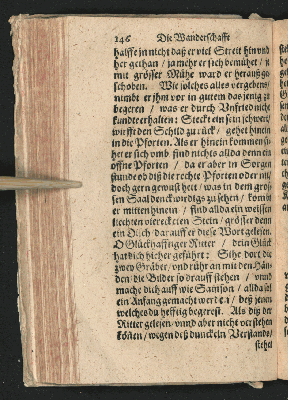 146 Die Wanderschafft
halff jn nicht daß er viel Streit hin vnd
her gethan / ja mehr er sich bemühet / je
mit grösser Mühe ward er herauß ge
schoben. Wie solches alles vergebens /
nimbt er jhm vor in gutem das jenig zu
begeren / was er durch Vnfried nicht
kundte erhalten: Steckt ein sein schwert /
wirfft den Schild zu rück / gehet hinein
in die Pforten. Als er hinein kommen si-
het er sich vmb find nichts allda denn ein
offne Pforten / da er aber in Sorgen
stunde ob diß die rechte Pforten oder nit /
doch gern gewust hett / was in dem gros-
sen Saal denckwirdigs zu sehen / kombt
er mitten hinein / find allda ein weissen
liechten vierecketen Stein / grösser denn
ein Tisch darauff er diese Wort gelesen.
O Glückhafftiger Ritter / dein Glück
hat dich hicher geführt: Sihe dort die
zwey Gräber / vnd rühr an mit den Hän-
den die Bilder so drauff stehen / vnnd
mache dich auff wie Samson / allda sol
ein Anfang gemacht werdẽ / deß jenen
welches du hefftig begerest. Als diß der
Ritter gelesen vnnd aber nicht verstehen
können / wegen deß dunckeln Verstands /
stehet